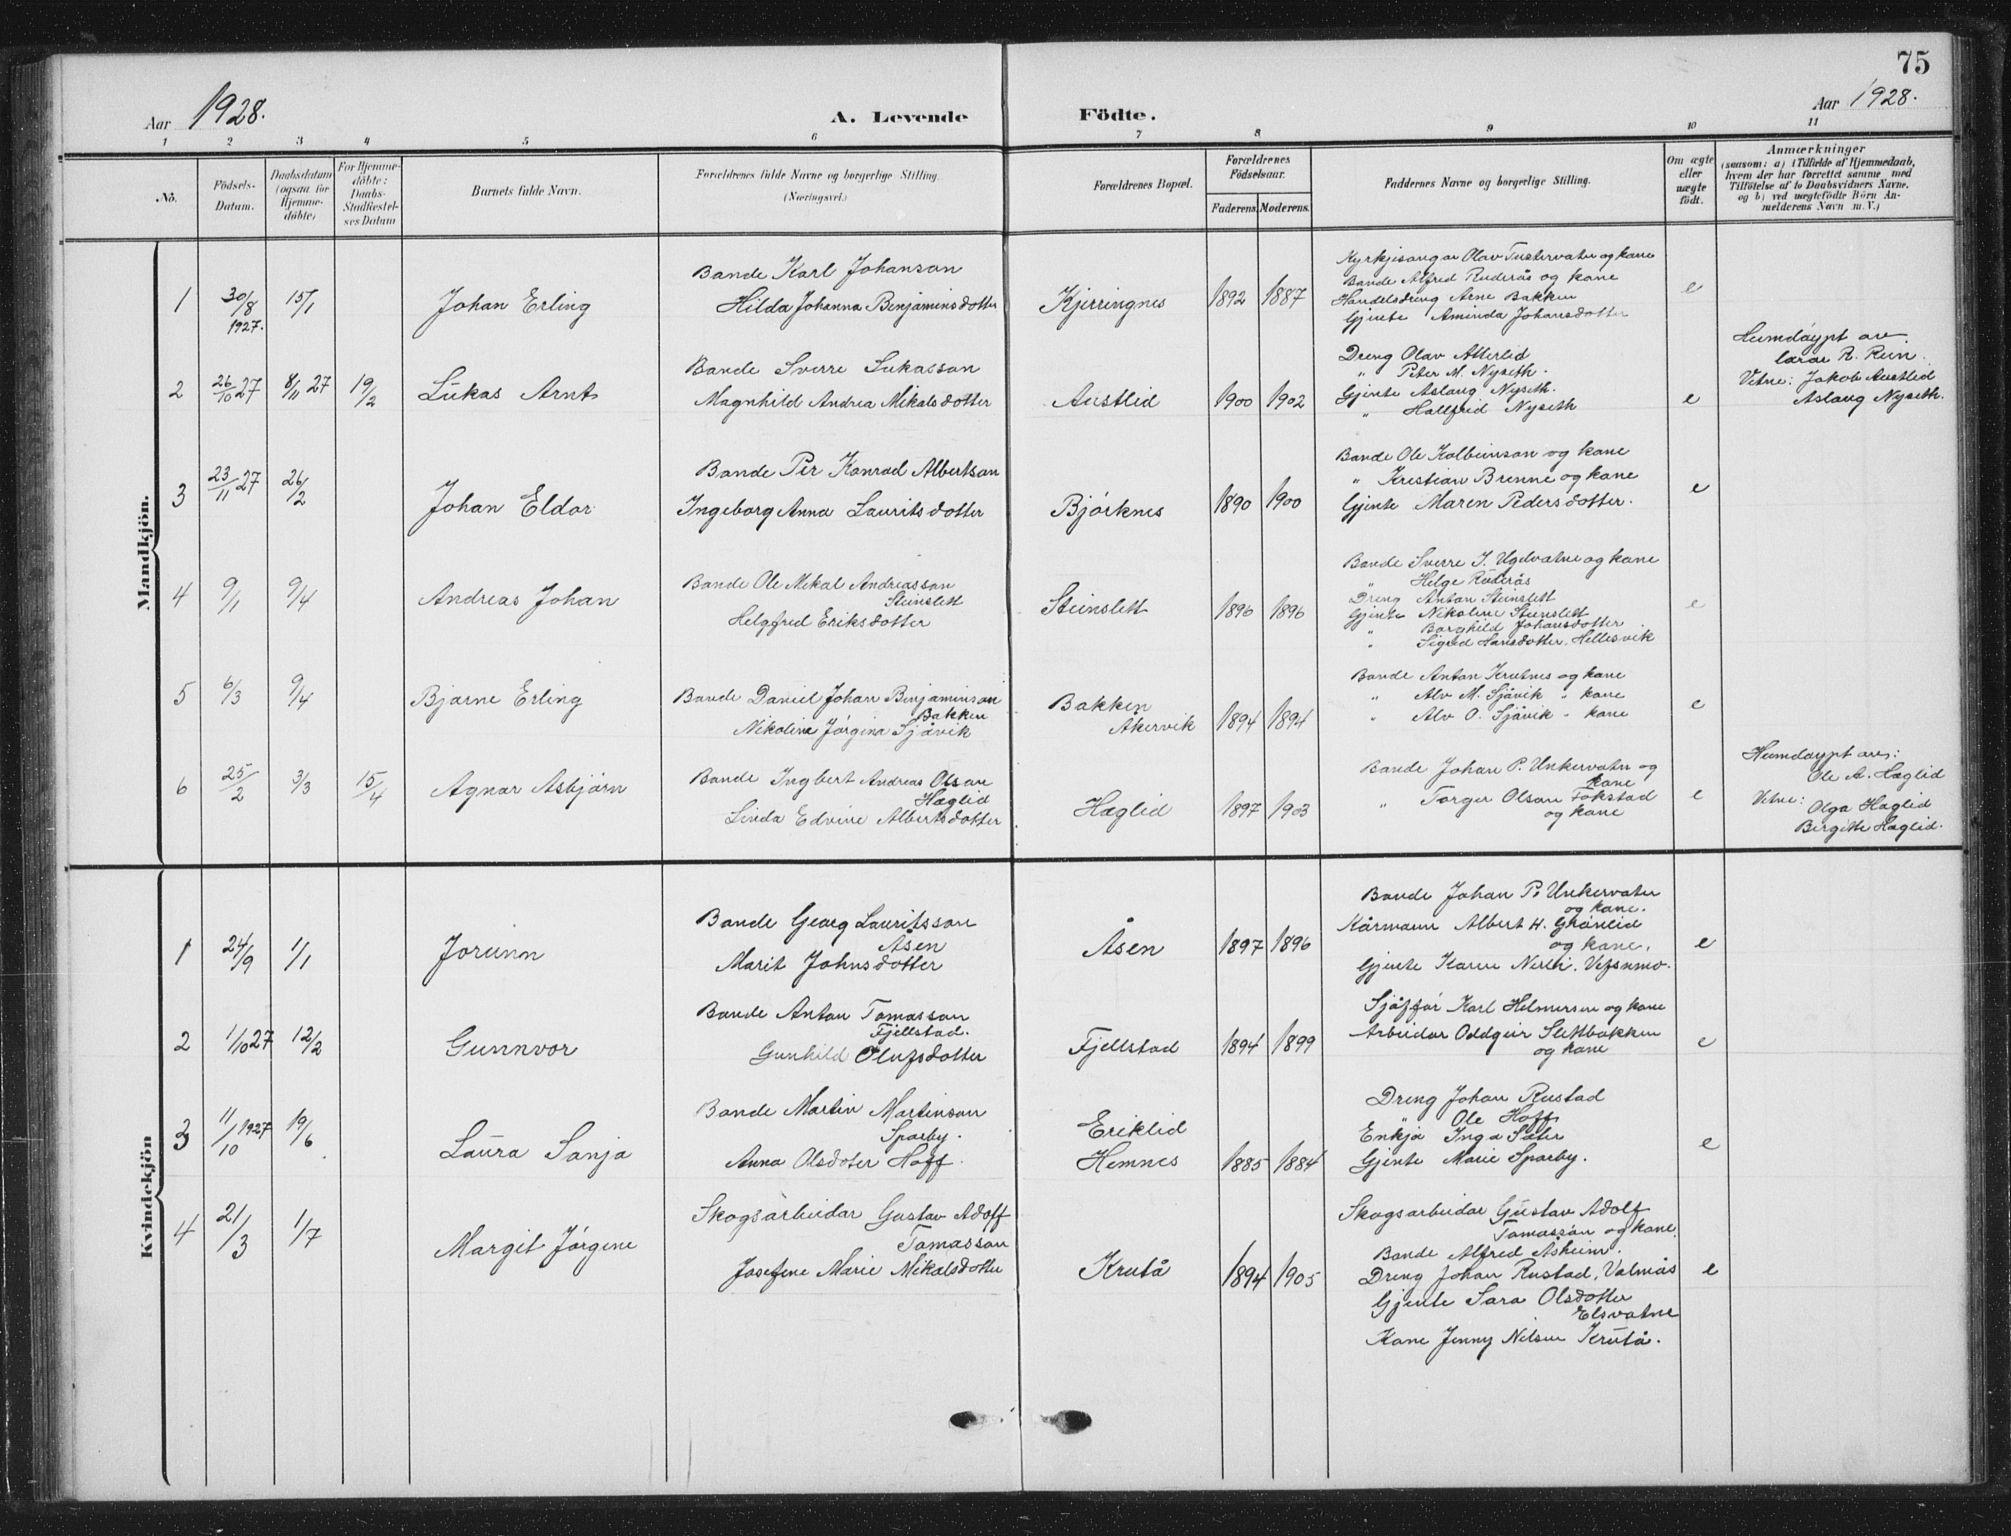 75
Aar 1928.
A. Levende Födte.
Aar 1928.
1 2 3 4 5 6 7 8 9 10 11
No.
Födsels-Datum.
Daabsdatum (ogsaa for Hjemme-döbte)
For Hjemme-döbte: Daabs-Stadfæstel-ses Datum
Barnets fulde Navn.
Forældrenes fulde Navne og borgerlige Stilling. (Næringsvei.)
Forældrenes Bopæl.
Forældrenes Födselsaar.
Faderens. Moderens.
Faddernes Navne og borgerlige Stilling.
Om ægte eller uægte födt.
Anmærkninger
(saasom: a) i Tilfælde af Hjemmedaab,
hvem der har forrettet samme, med
Tilföielse af to Daabsvidners Navne.
og b) ved uægtefödte Börn An-
melderens Navn m. V.)
Mandkjön.
1 30/8 1927. 15/1
Johan Erling
Bonde Karl Johanson
Hilda Johanna Benjaminsdotter
Kjerringnes
1892 1887
Kyrkjesongar Olav Tustervatn og kane
Bonde Alfred Ruderås og kane
Handelsdreng Arne Bakken
Gjente Aminda Johansdotter
e
2 26/10 27 8/11 27 19/2
Lukas Arnt
Bonde Sverre Lukasson
Magnhild Andrea Mikalsdotter
Austlid
1900 1902
Dreng Olav Atterlid
" Peter M. Nyseth.
Gjente Aslaug Nyseth.
" Hallfrid Nyseth
e
Heimdøypt av
lærar R. Rein.
Vitne: Jakob Austlid
Aslaug Nyseth.
3 23/11 27 26/2
Johan Eldor
Bonde Per Konrad Albertson
Ingeborg Anna Lauritsdotter
Bjørknes
1890 1900
Bonde Ole Kolbeinson og kane
" Kristian Brenne og kane
Gjente Maren Pedersdotter.
e
4 9/1 9/4
Andreas Johan
Bonde Ole Mikal Andreasson
Steinslett
Helgfred Eriksdotter
Steinslett
1896 1896
Bonde Sverre I. Ugelvatne og kane
" Helge Ruderås
Dreng Anton Steinslett
Gjente Nikoline Steinslett
" Borghild Johansdotter
" Sigrid Hansdotter. Hellesvik
e
5 6/3 9/4
Bjarne Erling
Bonde Daniel Johan Benjaminson
Bakken
Nikoline Jørgina Sjåvik
Bakken
Åkervik
1894 1894
Bonde Anton Krutnes og kane
" Alv M. Sjåvik " kane
" Alv O. Sjåvik " kane
e
6 25/2 3/3 15/4
Agnar Asbjørn
Bonde Ingbert Andreas Olson
Hæglid
Linda Edvine Albertsdotter
Hæglid
1897 1903
Bonde Johan P. Unkervatn og
kane
" Torger Olson Fokstad
og kane
e
Heimdøypt av:
Ole A. Hæglid
Vitne: Olga Hæglid
Birgitte Hæglid.
Kvindekjön
1 24/9 1/1
Jorunn
Bonde Georg Lauritsson
Åsen
Marit Johnsdotter
Åsen
1897 1896
Bonde Johan P. Unkervatn
og kane.
Kårmann Albert H. Grønlid
og kane.
Gjente Karen Nerli. Vefsnmo.
e
2 1/10 27 12/2
Gunnvor
Bonde Anton Tomasson
Fjellstad.
Gunhild Olufsdotter
Fjellstad
1894 1899
Sjåffør Karl Helmersen og kane
Arbeidar Oddgeir Slettbakken
og kane
e
3 11/10 1927 19/6
Laura Sanja
Bonde Martin Martinson
Sparby.
Anna Olsdoter Hoff.
Eriklid
Hemnes
1885 1884
Dreng Johan Rustad
" Ole Hoff
Enkja Inga Sæter
Gjente Marie Sparby.
e
4 21/3 1/7
Margit Jørgine
Skogsarbeidar Gustav Adolf
Tomasson
Josefine Marie Mikalsdotter
Krutå
1894 1905
Skogsarbeidar Gustav Adolf
Tomasson og kane.
Bonde Alfred Åsheim.
Dreng Johan Rustad, Valmås
Gjente Sara Olsdotter
Elsvatne
Kone Jenny Nilsen Krutå.
e